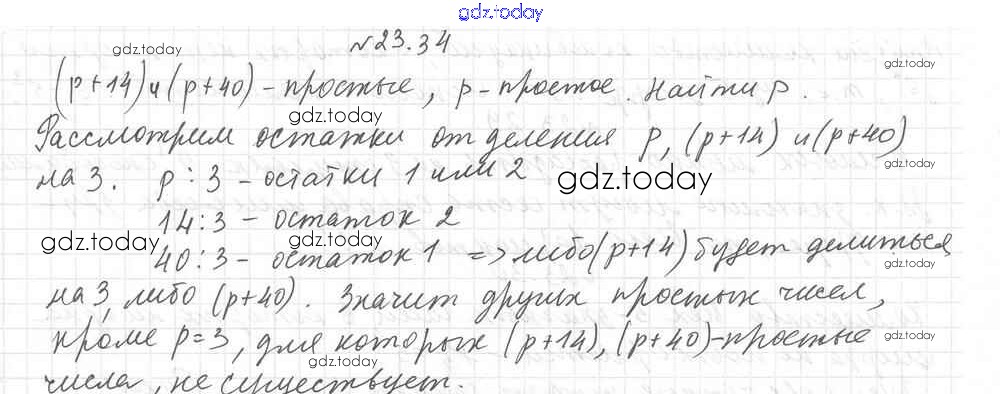 gdz.today
№23.34
gdz.today
gdz.today
(p+14) и (p+40) – простые, p – простое. Найти p.
gdz.today
Рассмотрим остатки от деления p, (p+14) и (p+40)
на 3. p : 3 – остатки 1 или 2
gdz.today
14 : 3 – остаток 2
gdz.today
gdz.today
40 : 3 – остаток 1 => либо (p+14) будет делиться
gdz.today
на 3, либо (p+40). Значит других простых чисел,
gdz.today
gdz.today
кроме p=3, для которых (p+14), (p+40) – простые
gdz.today
gdz.today
числа, не существует.